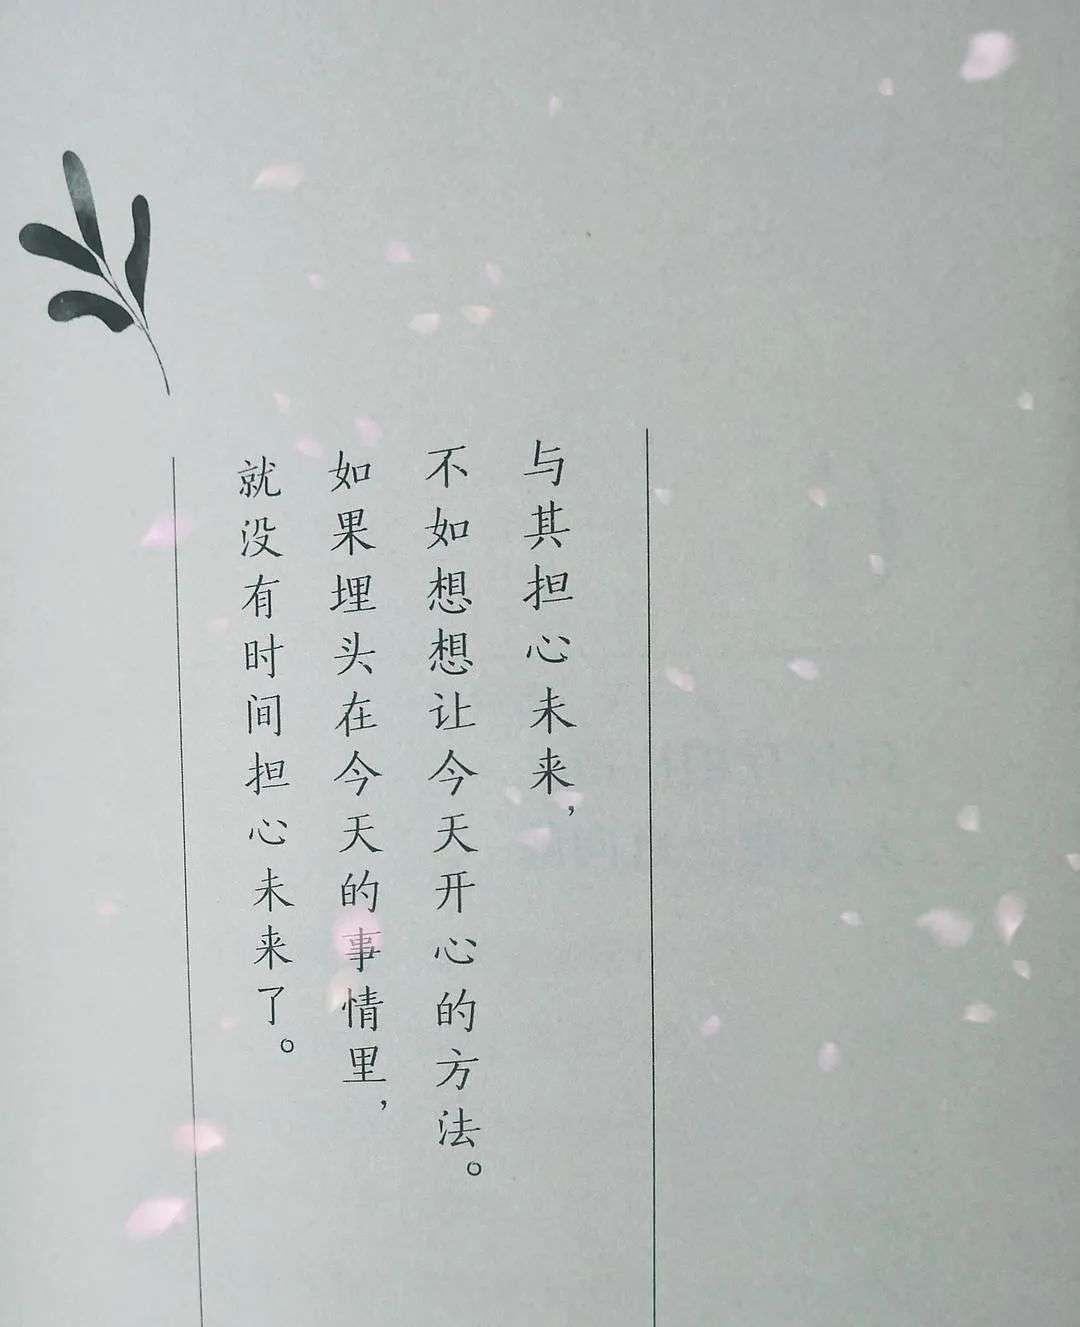 与其担心未来，
不如想想让今天开心的方法。
如果埋头在今天的事情里，
就没有时间担心未来了。